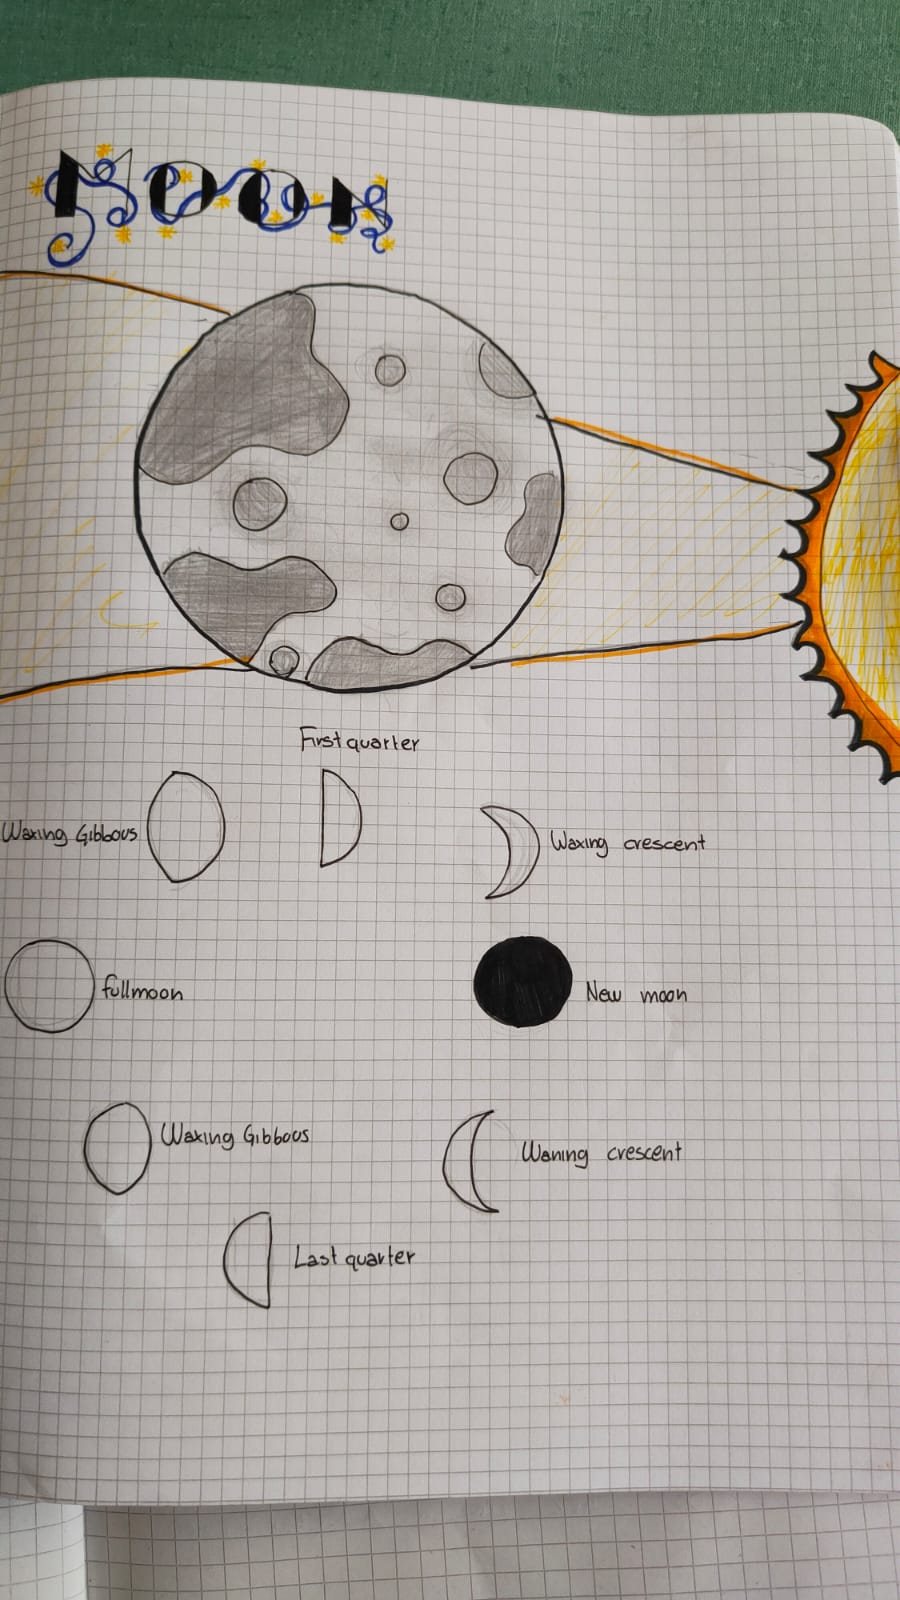 MOON
First quarter
Waxing Gibbous
Waxing crescent
fullmoon
New moon
Waxing Gibbous
Waning crescent
Last quarter